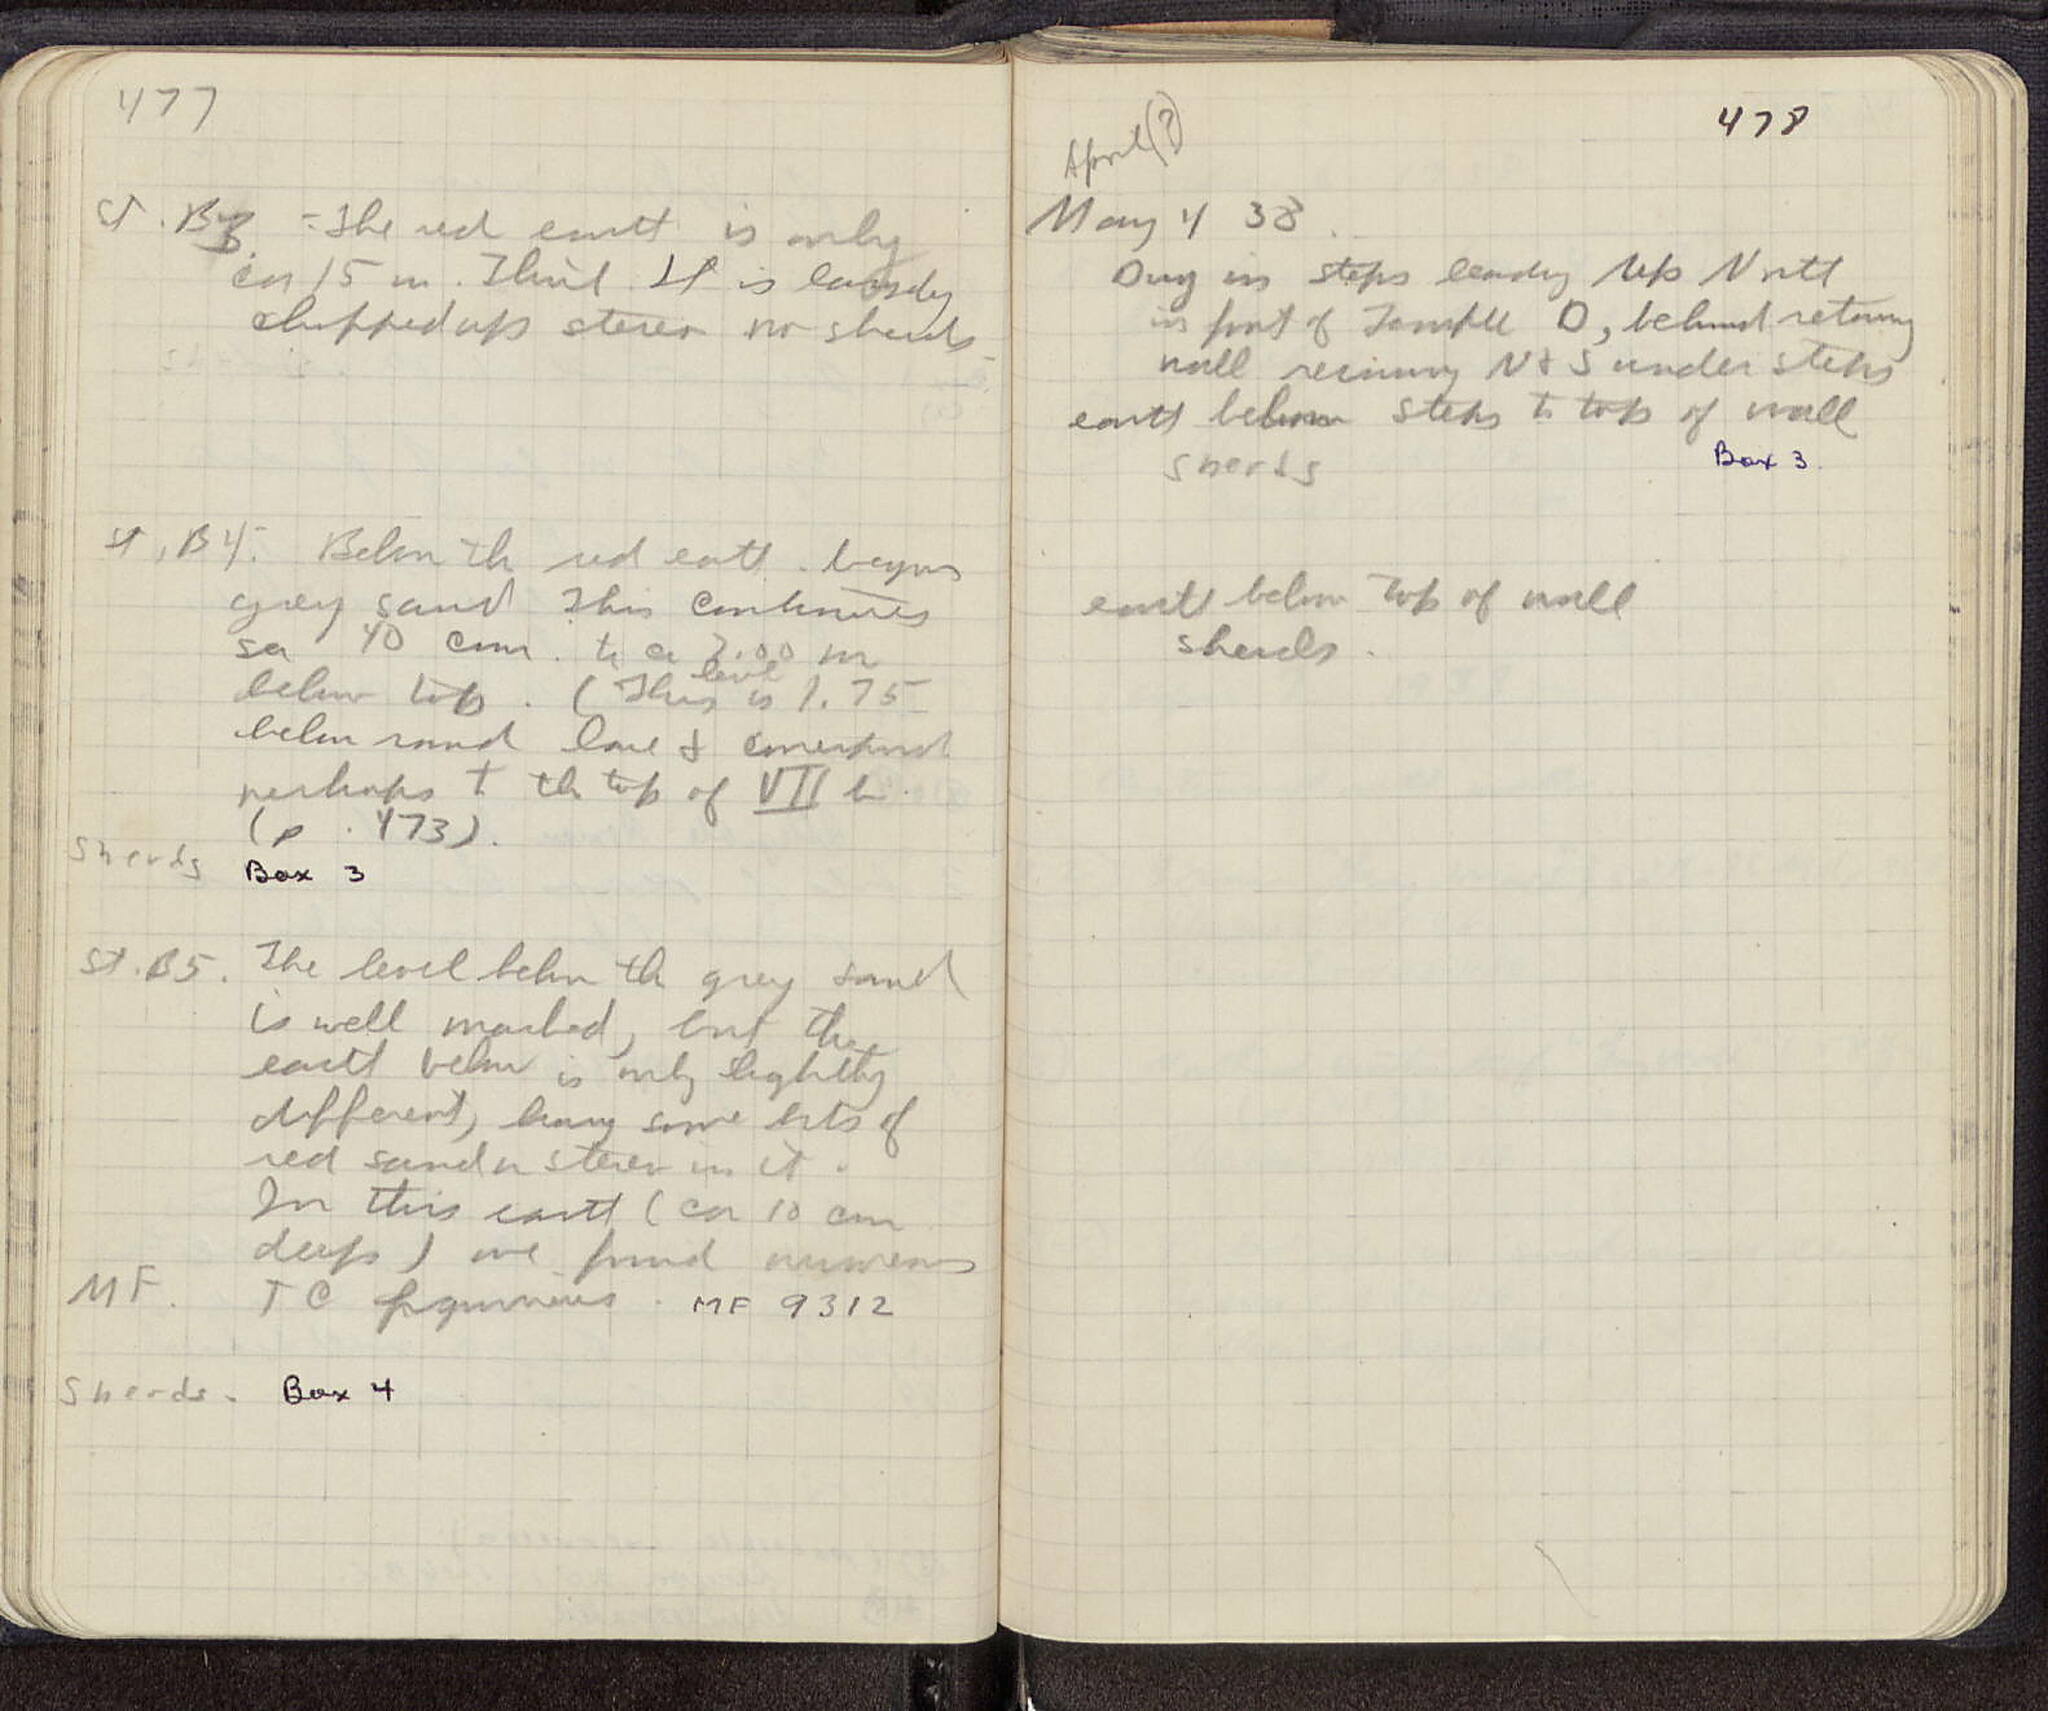 477
St. B3 - The red earth is only
ca 15 m. Thick It is largely
chipped up stereo no sherds
St. B4. Below the red earth begins
grey sand This continues
ca 40 cm. to ca 2.00 m
below top. (This level is 1.75
below round base &
perhaps to the top of VII b.
(p. 473).
Sherds Box 3
St. B5. The level below the grey sand
is well marked, but the
earth below is only lightly
different, having some bits of
red sand or stereo in it.
In this earth (ca 10 cm
deep) we found numerous
MF. TC figurines. MF 9312
Sherds. Box 4
478
April(?)
May 4 38.
Dug in steps leading up North
in front of Temple D, behind retaining
wall running N & S under steps
earth below steps to top of wall
Sherds Box 3.
earth below top of wall
sherds.